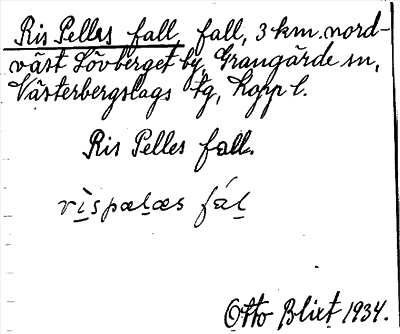 Ris Pelles fall, fall, 3 km. nord-
väst Lövberget by, Grangärde sn,
Västerbergslags tg, Kopp l.
Ris Pelles fall.
rìspælæs fál
Otto Blixt 1934.